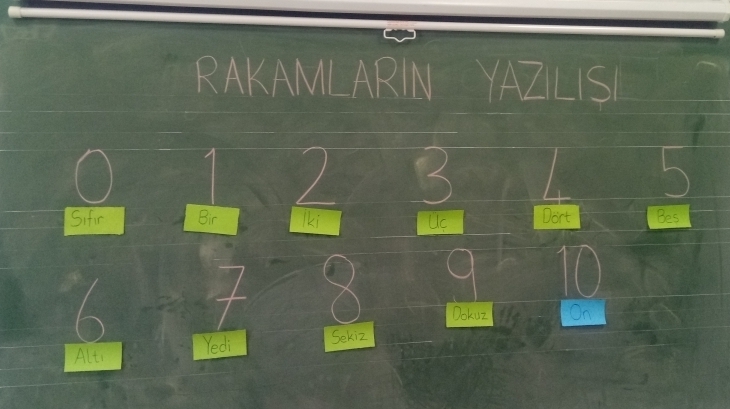 RAKAMLARIN YAZILIŞI
0 1 2 3 4 5
Sıfır Bir İki Üç Dört Beş
6 7 8 9 10
Altı Yedi Sekiz Dokuz On